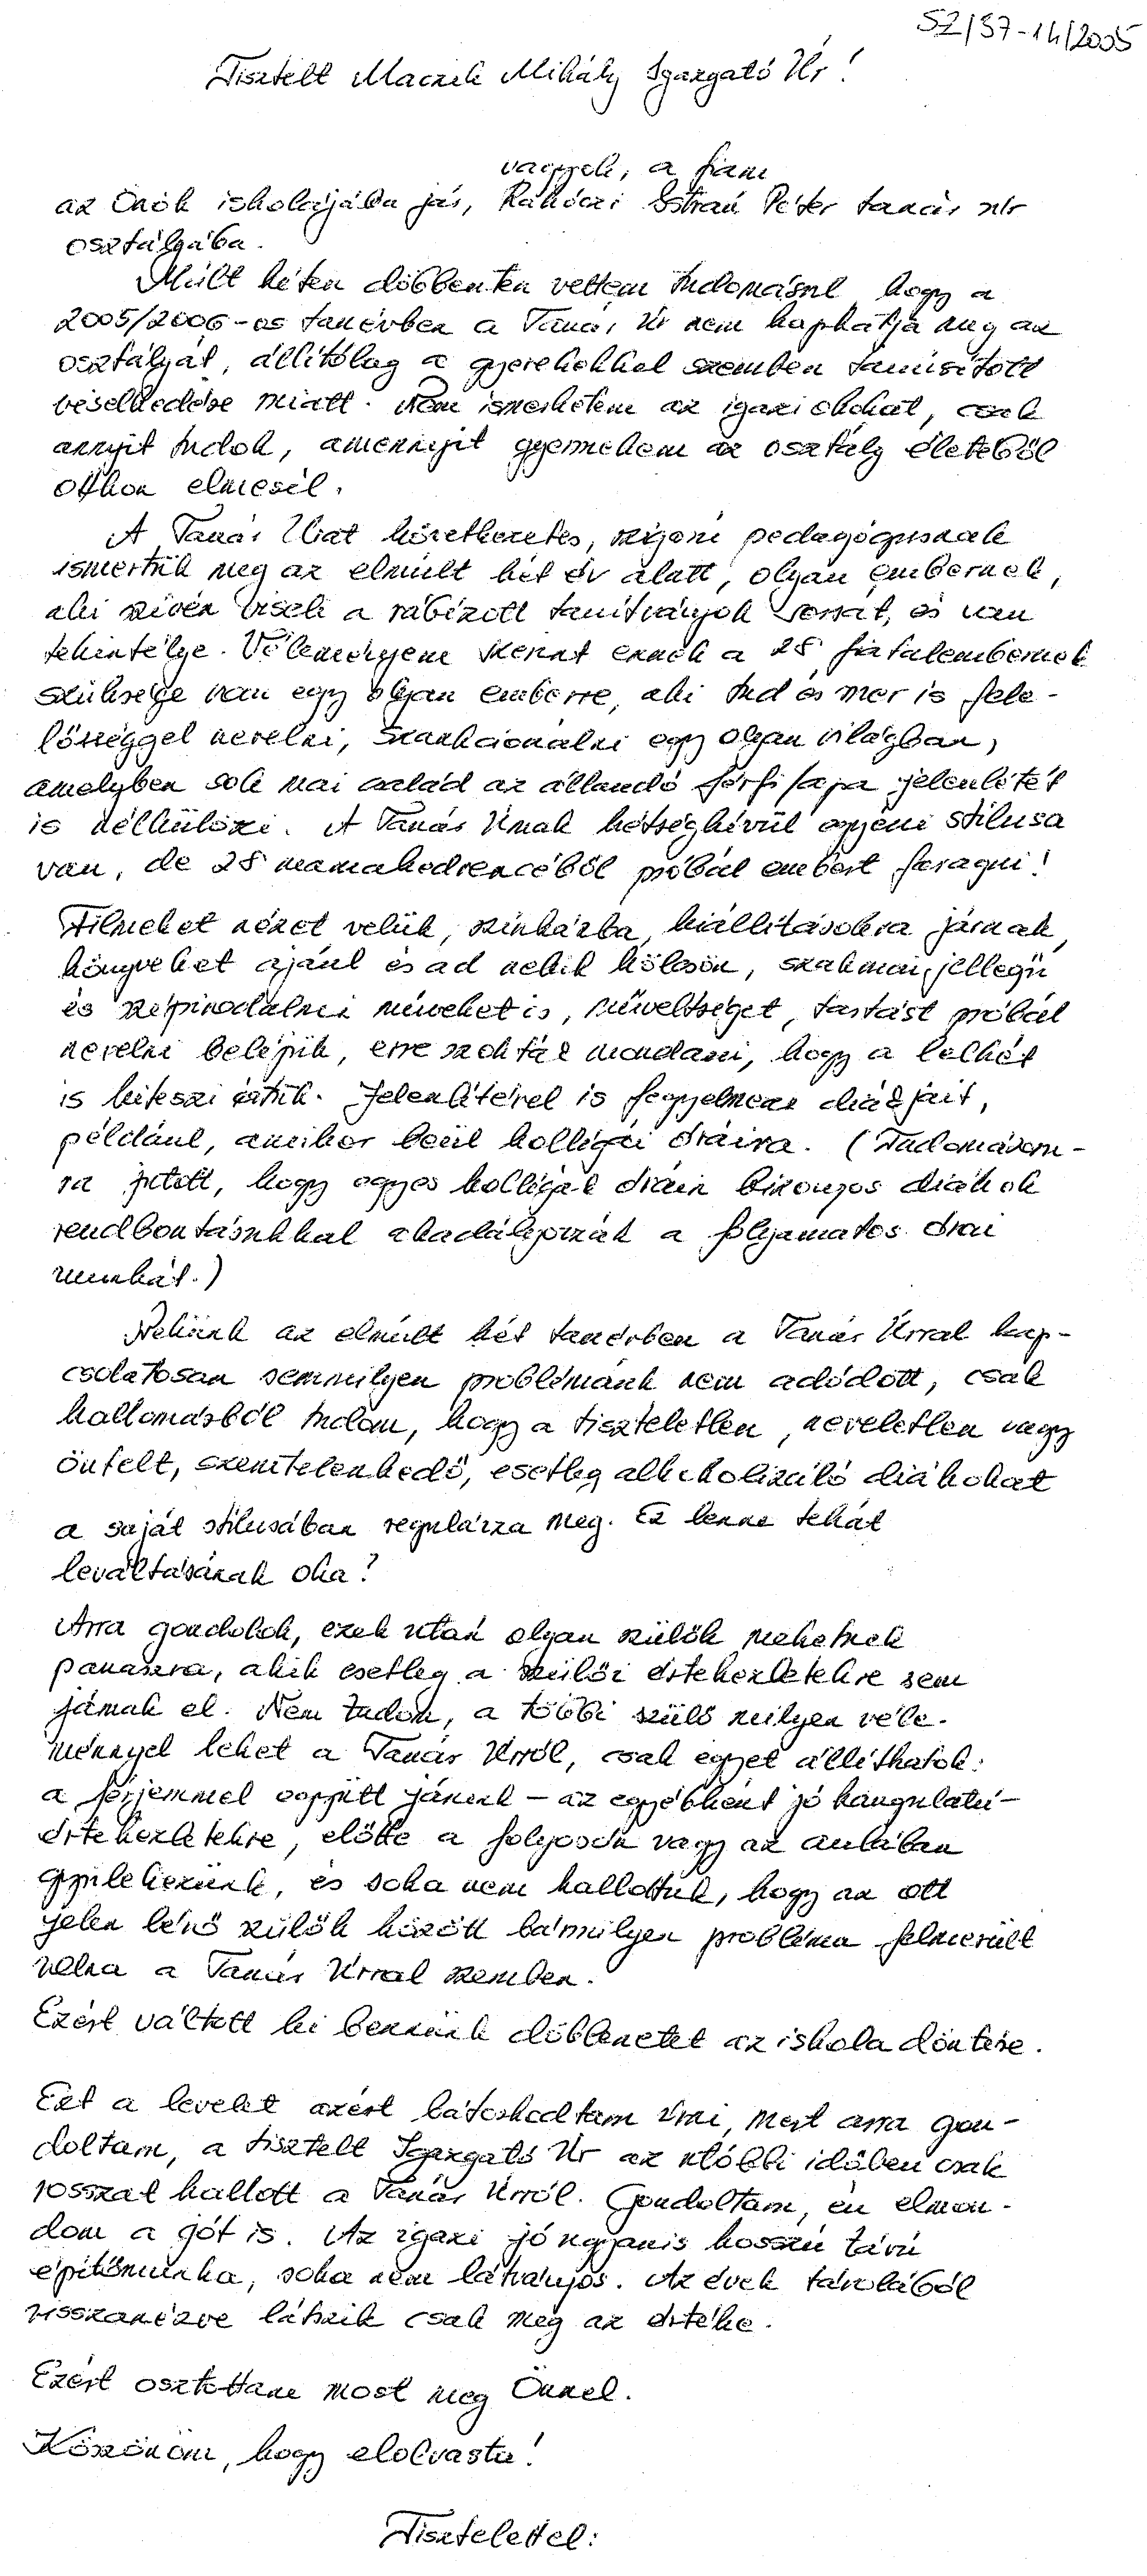 SZ/37-14/2005
Tisztelt Maczik Mihály Igazgató Úr!
vagyok, a fiam
az Önök iskolájába jár, Rákóczi István Péter tanár úr
osztályába.
Múlt héten döbbenten vettem tudomásul, hogy a
2005/2006-os tanévben a Tanár Úr nem kaphatja meg az
osztályát, állítólag a gyerekekkel szemben tanúsított
viselkedése miatt. Nem ismerhetem az igazi okokat, csak
annyit tudok, amennyit gyermekem az osztály életéből
otthon elmesél.
A Tanár Urat következetes, szigorú pedagógusnak
ismertük meg az elmúlt két év alatt, olyan embernek,
aki szívén viseli a rábízott tanítványok sorsát, és van
tekintélye. Véleményem szerint ennek a 28 fiatalembernek
szüksége van egy olyan emberre, aki tud és mer is fele-
lősséggel nevelni, szankcionálni egy olyan világban,
amelyben sok mai család az állandó férfi/apa jelenlétét
is nélkülözi. A Tanár Úrnak kétségkívül egyéni stílusa
van, de 28 mamakedvencéből próbál embert faragni!
Filmeket nézet velük, színházba, kiállításokra járnak,
könyveket ajánl és ad nekik kölcsön, szakmai jellegű
és szépirodalmi műveket is, műveltséget, tartást próbál
nevelni beléjük, erre szokták mondani, hogy a lelkét
is kiteszi értük. Jelenlétével is fegyelmezi diákjait,
például, amikor beül kollégái óráira. (Tudomásom-
ra jutott, hogy egyes kollégák óráin bizonyos diákok
rendbontásukkal akadályozzák a folyamatos órai
munkát.)
Nekünk az elmúlt két tanévben a Tanár Úrral kap-
csolatosan semmilyen problémánk nem adódott, csak
hallomásból tudom, hogy a tiszteletlen, neveletlen vagy
önfelt, szemtelenkedő, esetleg alkoholizáló diákokat
a saját stílusában regulázza meg. Ez lenne tehát
leváltásának oka?
Arra gondolok, ezek után olyan szülők mehetnek
panaszra, akik esetleg a szülői értekezletekre sem
járnak el. Nem tudom, a többi szülő milyen véle-
ménnyel lehet a Tanár Úrról, csak egyet állíthatok:
a férjemmel együtt járunk – az egyébként jó hangulatú –
értekezletekre, előtte a folyosón vagy az aulában
gyülekezünk, és soha nem hallottuk, hogy az ott
jelen lévő szülők között bármilyen probléma felmerült
volna a Tanár Úrral szemben.
Ezért váltott ki bennünk döbbenetet az iskola döntése.
Ezt a levelet azért bátorkodtam írni, mert arra gon-
doltam, a tisztelt Igazgató Úr az utóbbi időben csak
rosszat hallott a Tanár Úrról. Gondoltam, én elmon-
dom a jót is. Az igazi jó ugyanis hosszú távú
építőmunka, soha nem látványos. Az évek távolából
visszanézve látszik csak meg az értéke.
Ezért osztottam most meg Önnel.
Köszönöm, hogy elolvasta!
Tisztelettel: